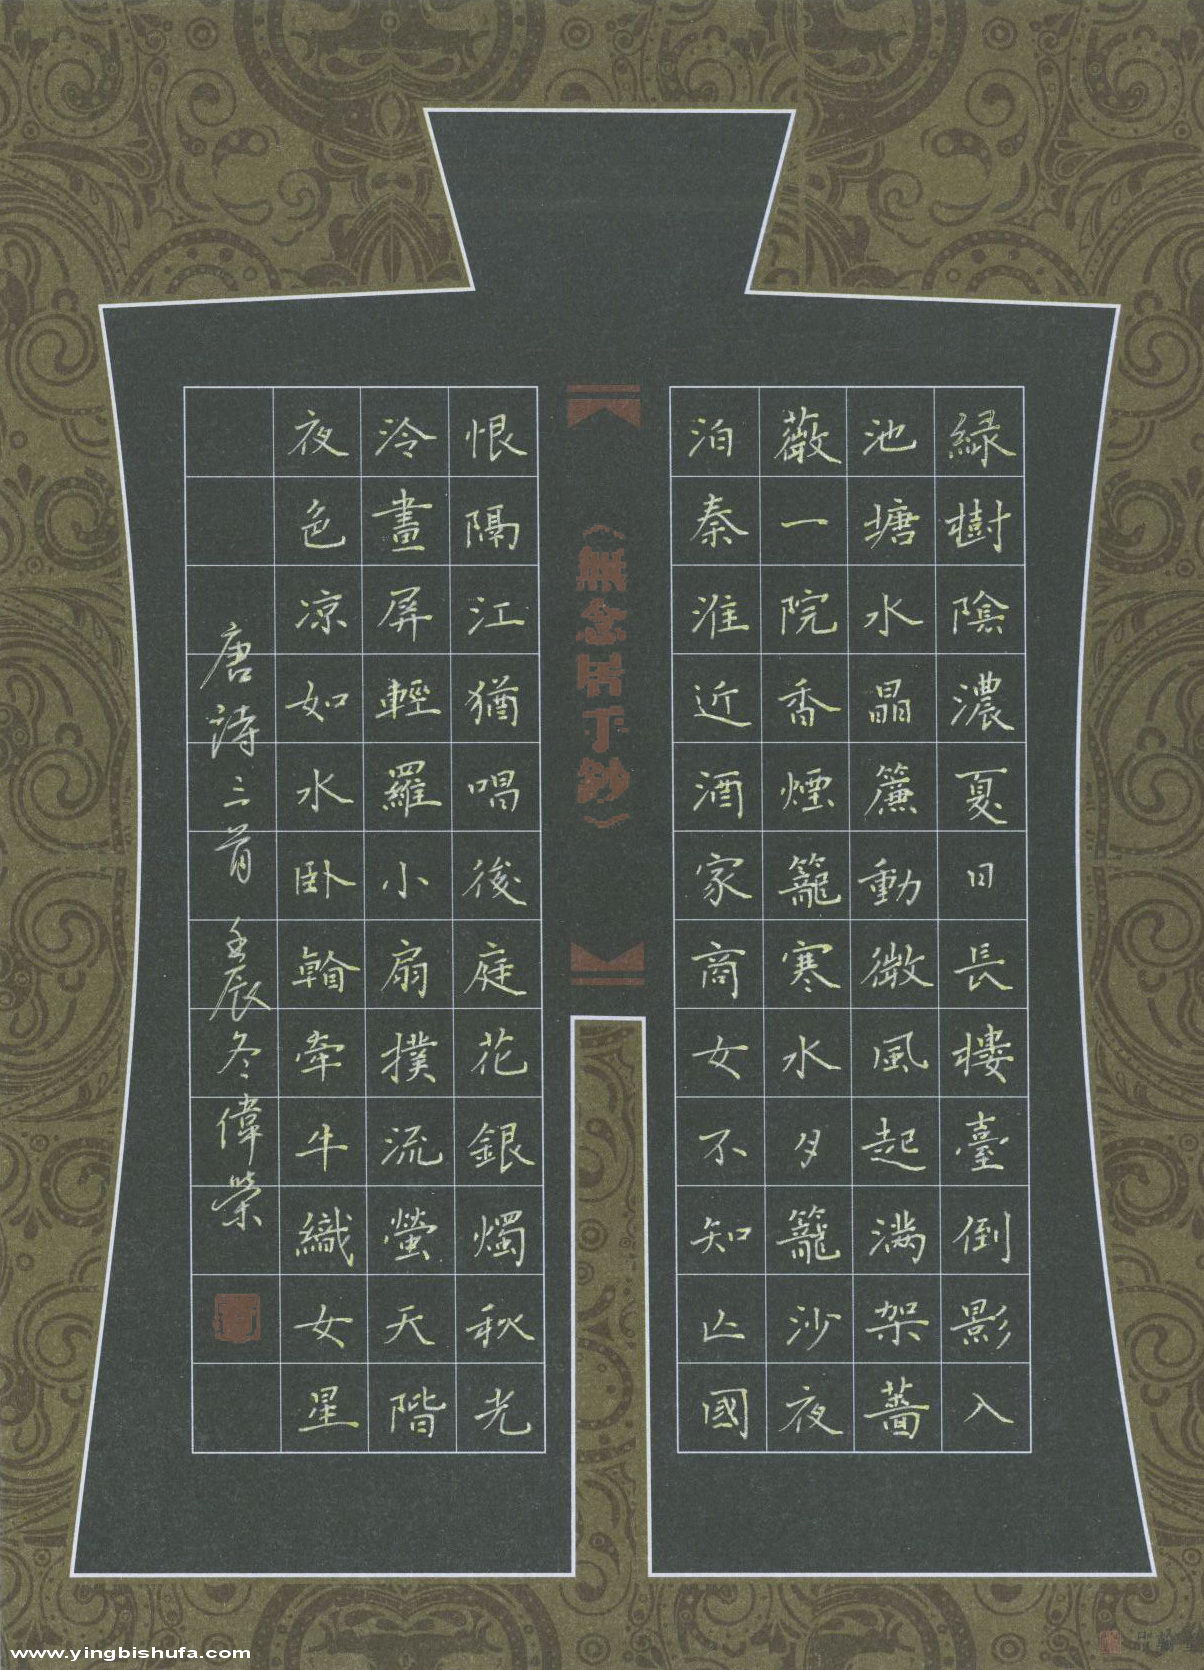 緑樹陰濃夏日長樓臺倒影入
池塘水晶簾動微風起滿架薔
薇一院香煙籠寒水月籠沙夜
泊秦淮近酒家商女不知亡國
《無念居手鈔》
恨隔江猶唱後庭花銀燭秋光
泠畫屏輕羅小扇撲流螢天階
夜色凉如水卧看牽牛織女星
唐詩三首壬辰冬偉榮
www.yingbishufa.com